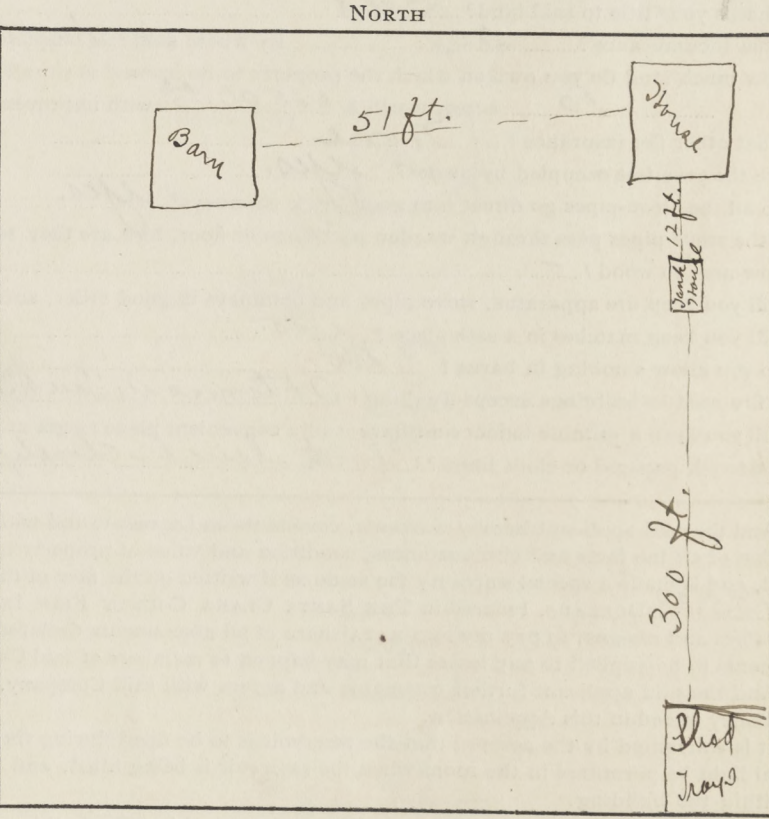 NORTH
Barn
51 ft.
House
12 ft.
Tank
House
300 ft.
Shed
Trays